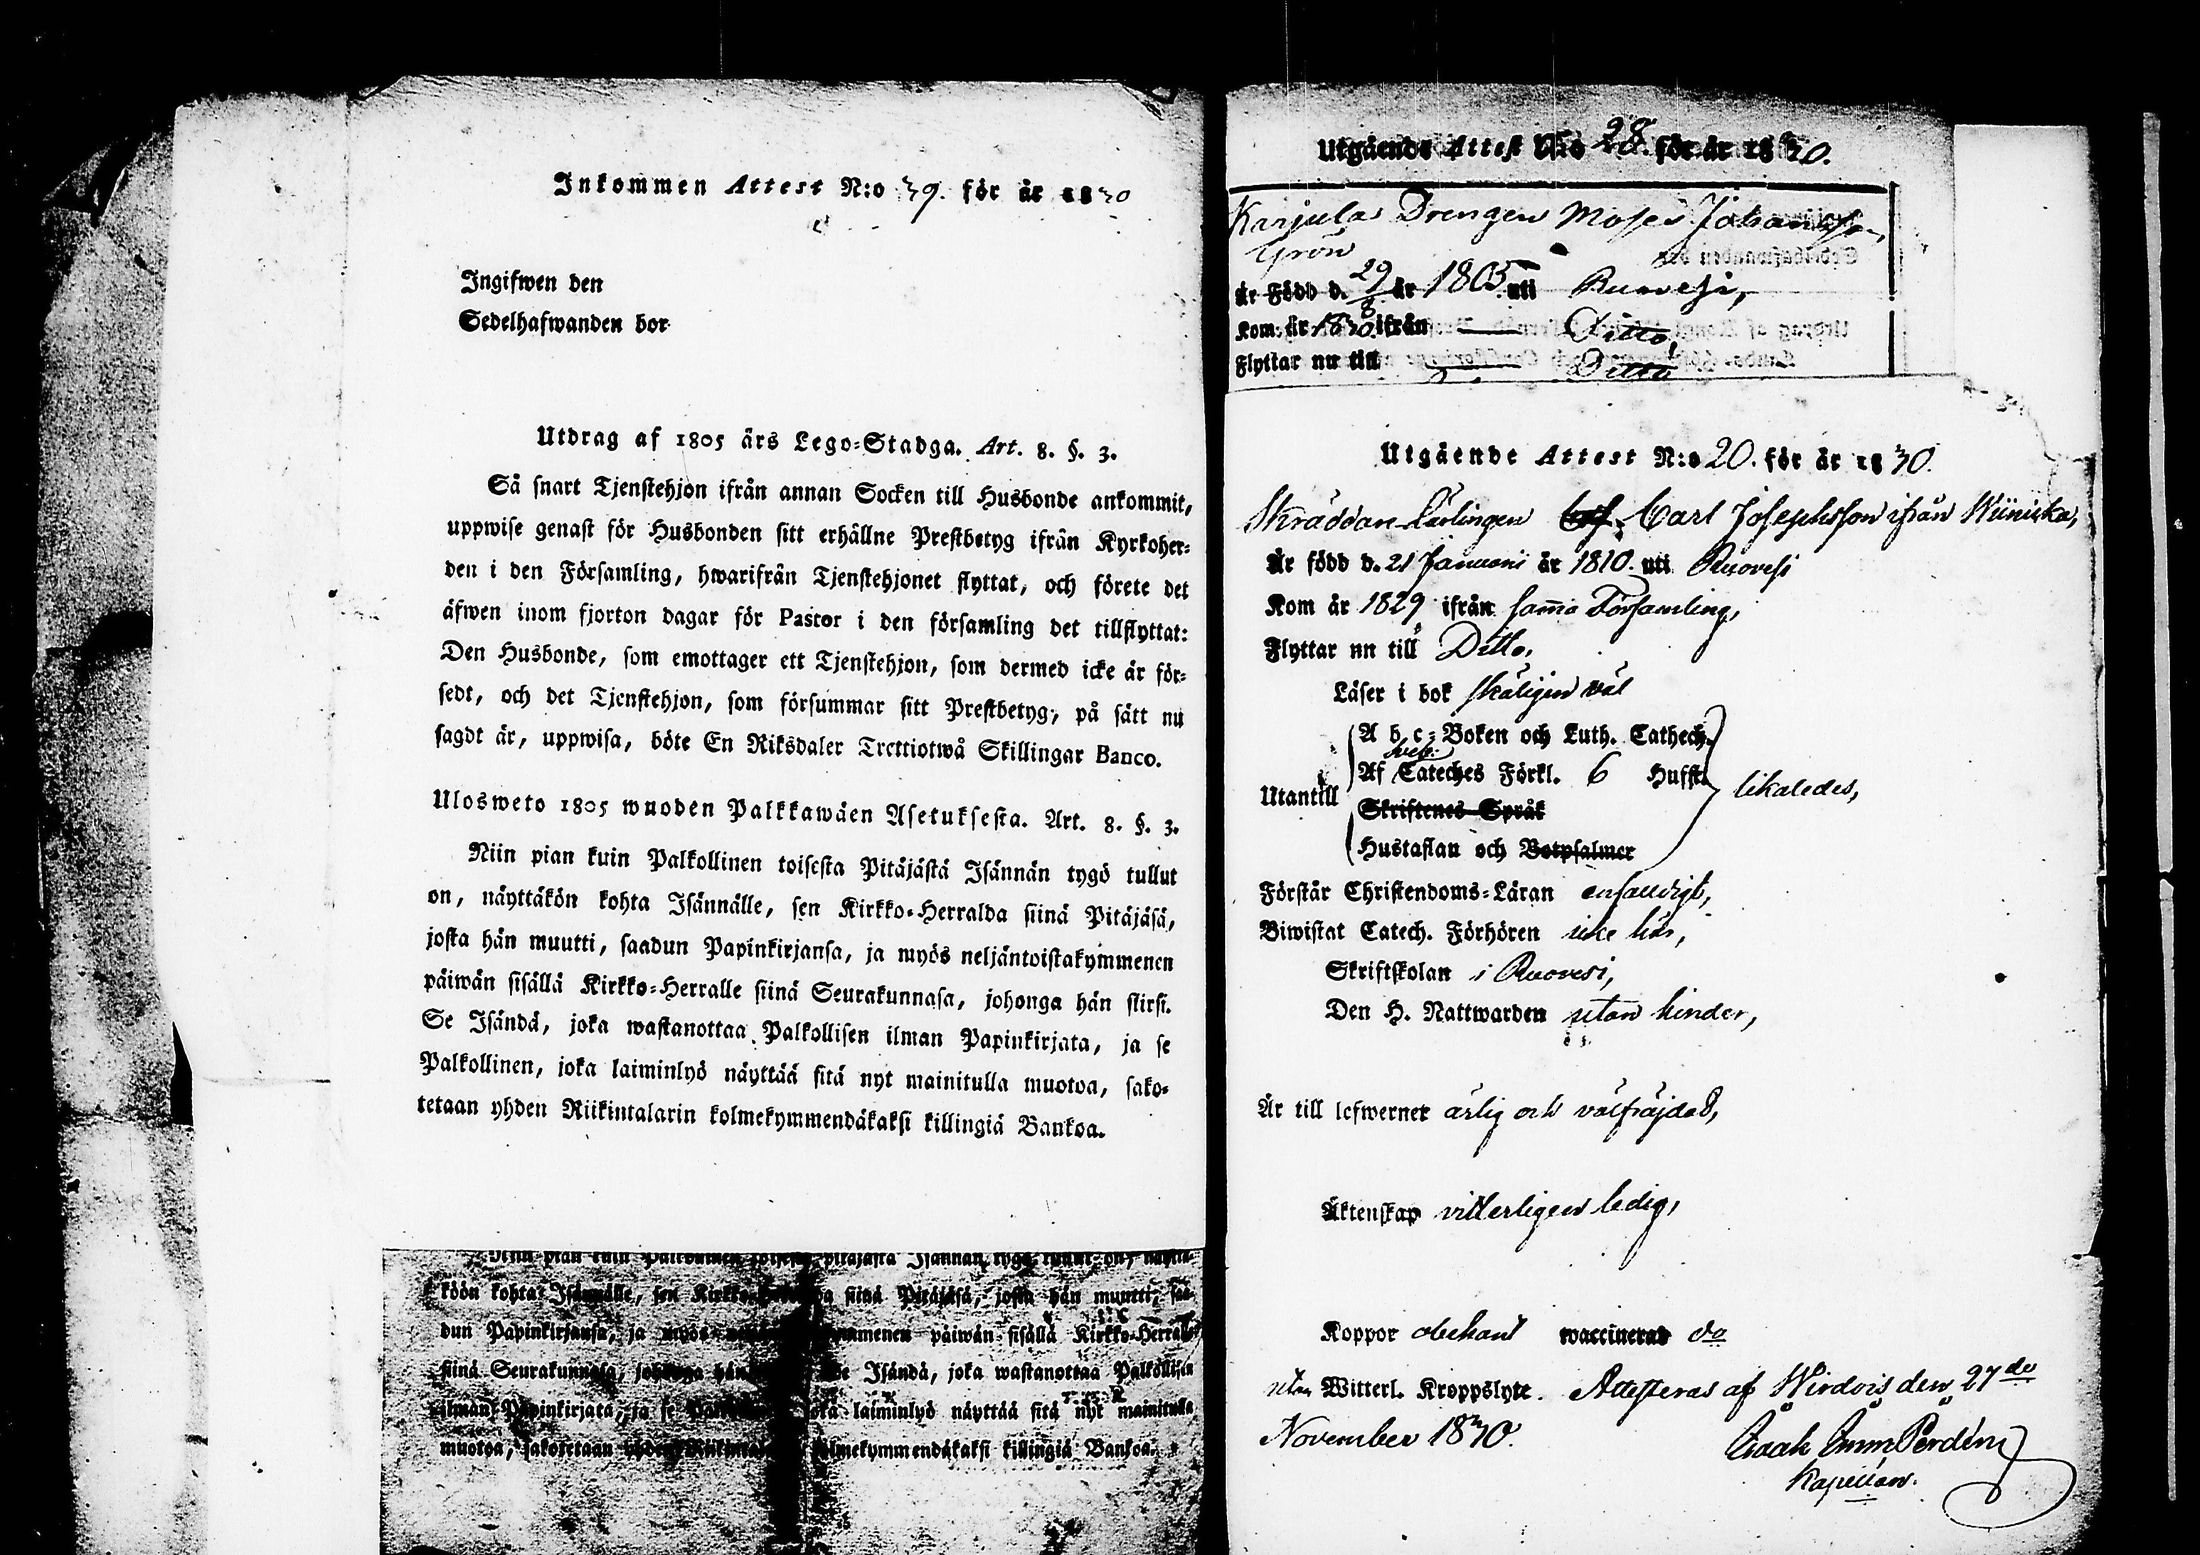 Inkommen Attest N:o 39. för år 1830
Ingifwen den
Sedelhafwanden bor
Utdrag af 1805 års Lego-Stadga. Art. 8. §. 3.
Så snart Tjenstehjon ifrån annan Socken till Husbonde ankommit,
uppwise genast för Husbonden sitt erhållne Prestbetyg ifrån Kyrkoher-
den i den Församling, hwarifrån Tjenstehjonet flyttat, och förete det
äfwen inom fjorton dagar för Pastor i den församling det tillflyttat:
Den Husbonde, som emottager ett Tjenstehjon, som dermed icke är för-
sedt, och det Tjenstehjon, som försummar sitt Prestbetyg, på sätt nu
sagdt är, uppwisa, böte En Riksdaler Trettiotwå Skillingar Banco.
Ulosweto 1805 wuoden Palkkawäen Asetuksesta. Art. 8. §. 3.
Niin pian kuin Palkollinen toisesta Pitäjästä Isännän tygö tullut
on, näyttäkön kohta Isännälle, sen Kirkko-Herralda siinä Pitäjäsä,
josta hän muutti, saadun Papinkirjansa, ja myös neljäntoistakymmenen
päiwän sisällä Kirkko-Herralle siinä Seurakunnasa, johonga hän siirsi.
Se Isändä, joka wastanottaa Palkollisen ilman Papinkirjata, ja se
Palkollinen, joka laiminlyö näyttää sitä nyt mainitulla muotoa, sako-
tetaan yhden Riikintalarin kolmekymmendäkaksi killingiä Bankoa.
Niin pian kuin Palkollinen toisesta Pitäjästä Isännän tygö tullut on, näyttä-
köön kohta Isännälle, sen siinä Pitäjäsä, josta hän muutti, saa-
dun Papinkirjansa, ja myös päiwän sisällä Kirkko-Herralle
siinä Seurakunnasa, Isändä, joka wastanottaa Palkollisen
ilman Papinkirjata, ja se laiminlyö näyttää sitä nyt mainitulla
muotoa, sakotetaan kolmekymmendäkaksi killingiä Bankoa.
Utgående Attest N:o 28. för år 1830.
Karjula Drengen Moses Johansson
Grön
är Född d. 29/8 år 1805 uti Ruovesi,
Kom år 1830 ifrån Ditto,
Flyttar nu till Ditto
Utgående Attest N:o 20. för år 1830.
Skräddare Lärlingen Carl Josephsson ifrån
Är född d. 21 Januarii år 1810. uti Ruovesi
Kom år 1829 ifrån samma Församling,
Flyttar nu till Ditto.
Läser i bok skäligen väl
A b c-Boken och Luth. Cathech.
Sveb:
Af Cateches Förkl. 6 Hufst.
Utantill likaledes,
Skriftenes Språk
Hustaflan och Botpsalmer
Förstår Christendoms-Läran enfaldigt,
Biwistat Catech. Förhören icke här,
Skriftskolan i Ruovesi,
Den H. Nattwarden utan hinder,
Är till lefwernet ärlig och välfräjdad,
Äktenskap vitterligen ledig,
Koppor obekant waccinerad do
utan Witterl. Kroppslyte. Attesteras af Wirdois den 27de
November 1830.
Isaak Perdén
Kapellan.